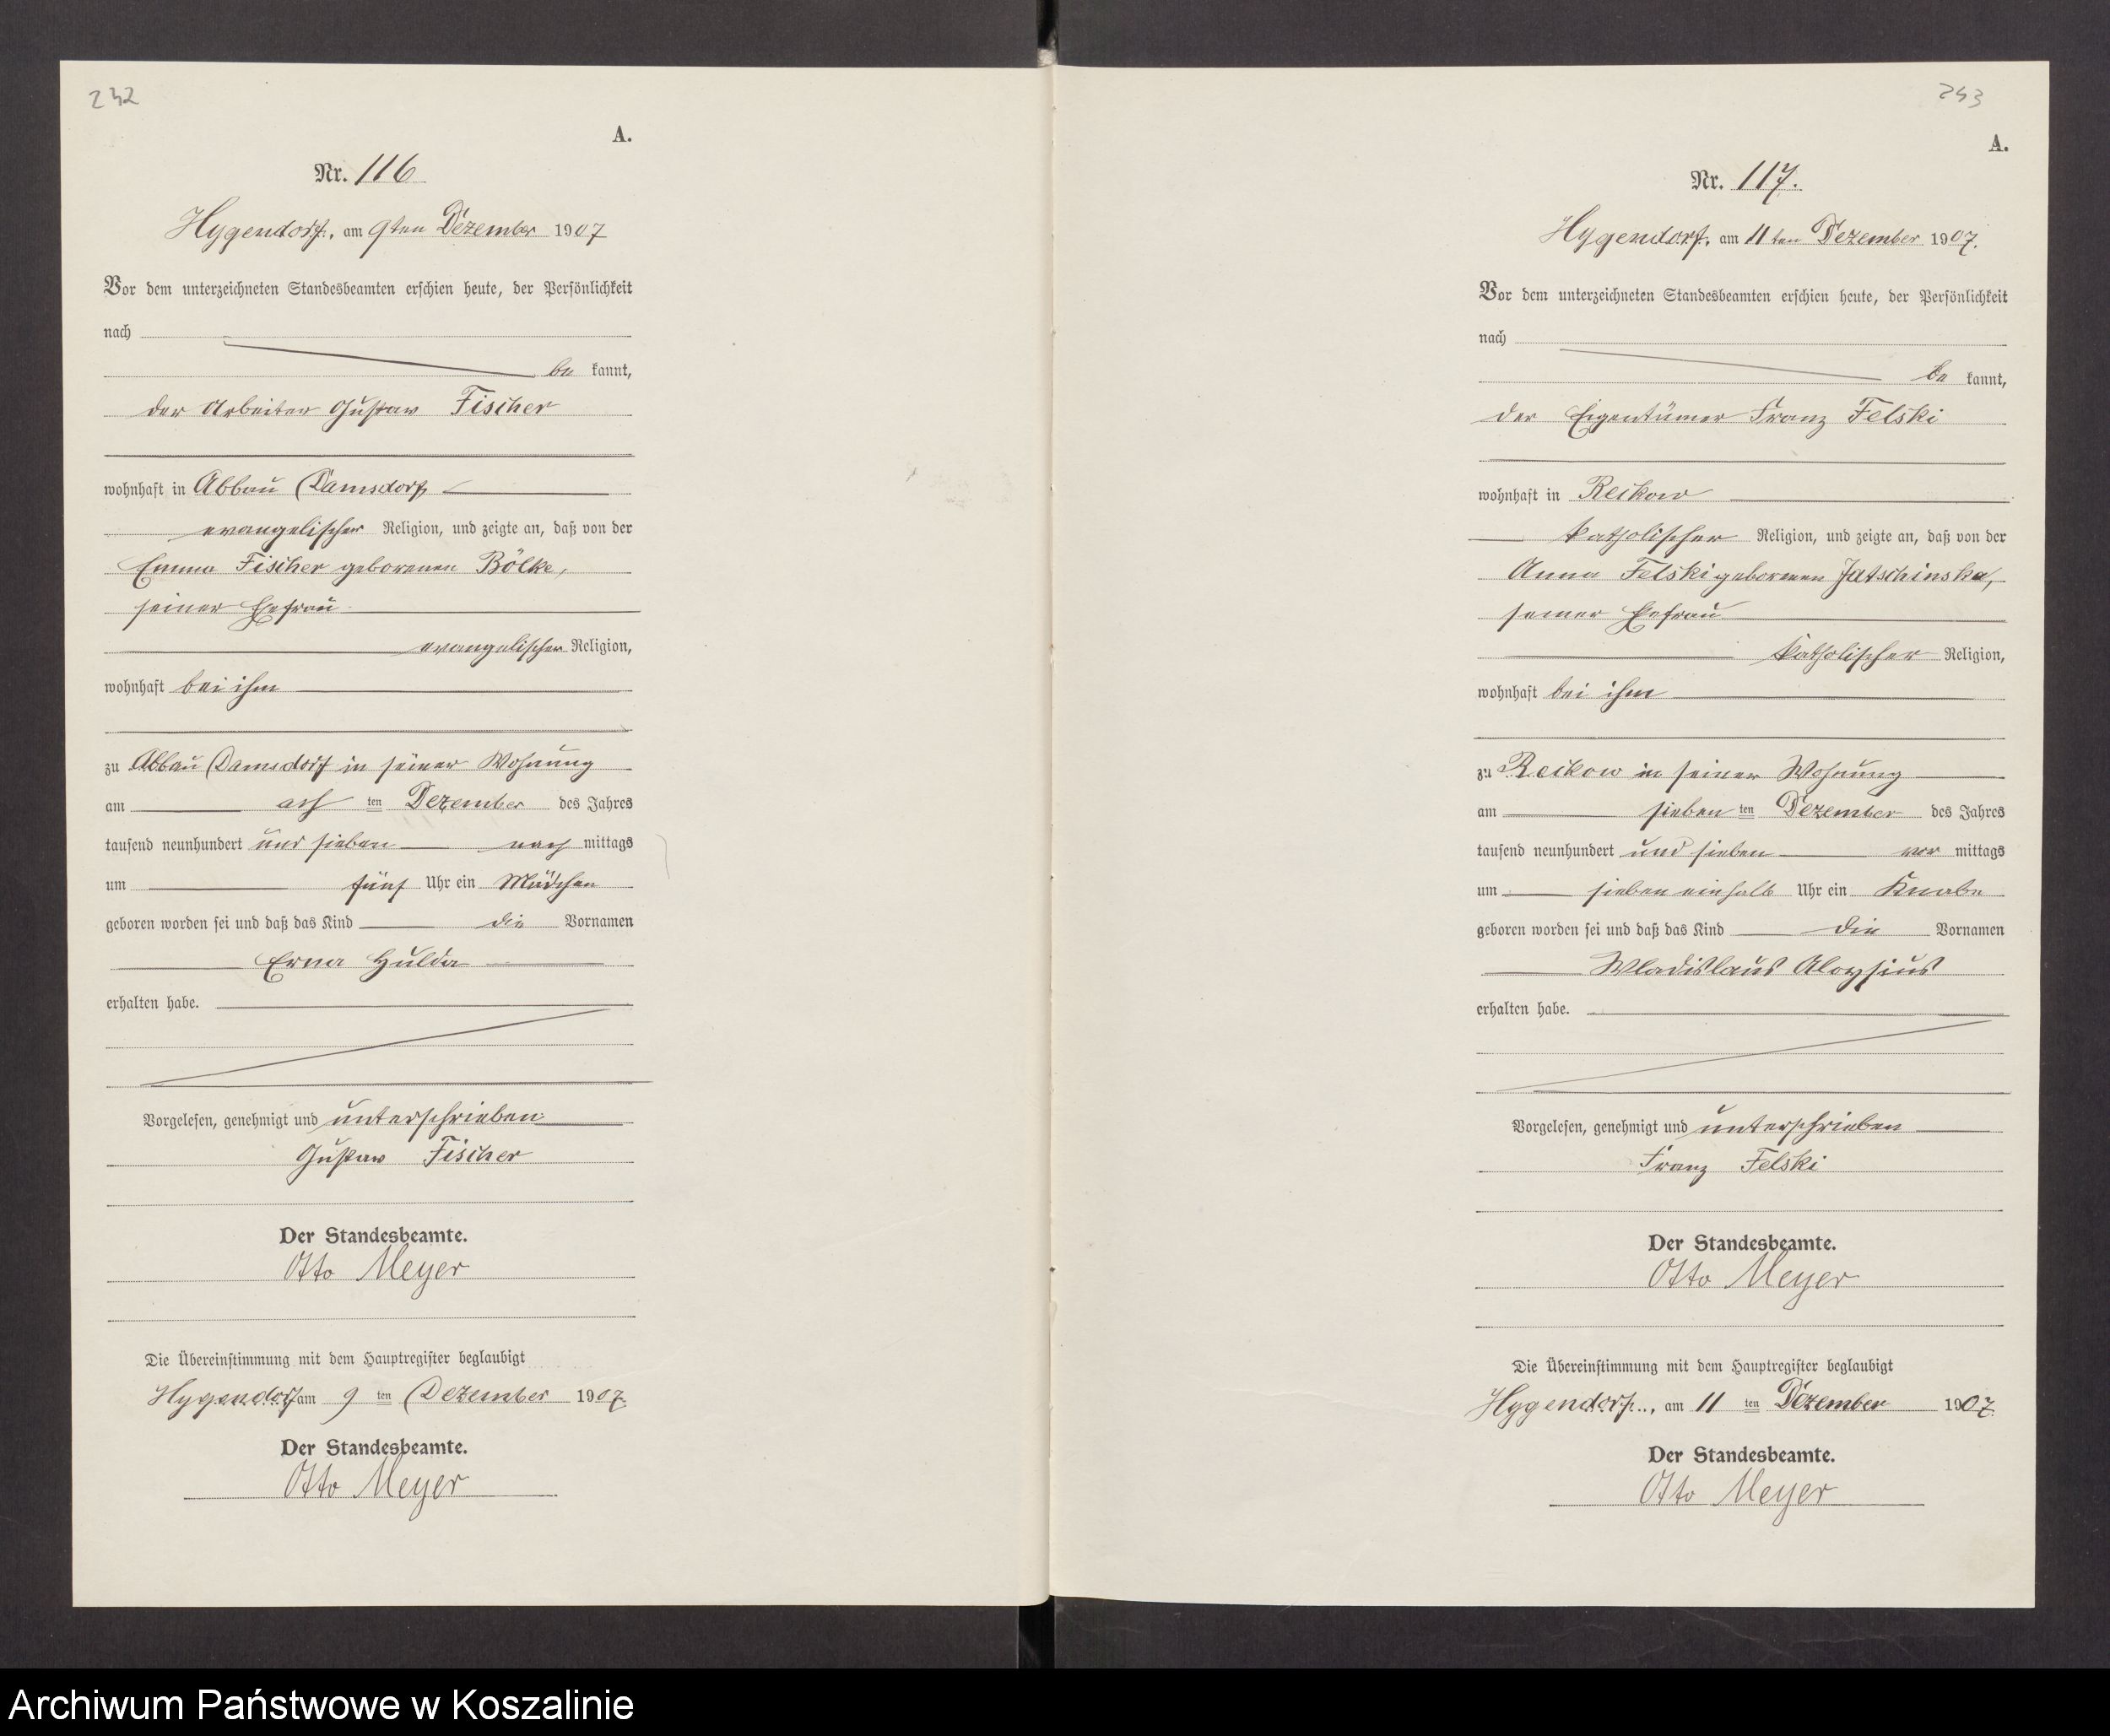 242
A.
Nr. 116
Hygendorf, am 9ten Dezember 1907
Vor dem unterzeichneten Standesbeamten erschien heute, der Persönlichkeit
nach
be kannt,
der Arbeiter Gustav Fischer
wohnhaft in Abbau Damsdorf
evangelischer Religion, und zeigte an, daß von der
Emma Fischer geborenen Bölke,
seiner Ehefrau
evangelischer Religion,
wohnhaft bei ihm
zu Abbau Damsdorf in seiner Wohnung
am ach ten Dezember des Jahres
tausend neunhundert und sieben nach mittags
um fünf Uhr ein Mädchen
geboren worden sei und daß das Kind die Vornamen
Erna Hulda
erhalten habe.
Vorgelesen, genehmigt und unterschrieben
Gustav Fischer
Der Standesbeamte.
Otto Meyer
Die Übereinstimmung mit dem Hauptregister beglaubigt
Hygendorf am 9 ten Dezember 1907.
Der Standesbeamte.
Otto Meyer
243
A.
Nr. 117.
Hygendorf, am 11ten Dezember 1907.
Vor dem unterzeichneten Standesbeamten erschien heute, der Persönlichkeit
nach
be kannt,
der Eigentümer Franz Felski
wohnhaft in Reckow
katholischer Religion, und zeigte an, daß von der
Anna Felski geborenen Jatschinska,
seiner Ehefrau
katholischer Religion,
wohnhaft bei ihm
zu Reckow in seiner Wohnung
am sieben ten Dezember des Jahres
tausend neunhundert und sieben vor mittags
um sieben einhalb Uhr ein Knabe
geboren worden sei und daß das Kind die Vornamen
Wladislaus Aloysius
erhalten habe.
Vorgelesen, genehmigt und unterschrieben
Franz Felski
Der Standesbeamte.
Otto Meyer
Die Übereinstimmung mit dem Hauptregister beglaubigt
Hygendorf, am 11 ten Dezember 1907.
Der Standesbeamte.
Otto Meyer
Archiwum Państwowe w Koszalinie